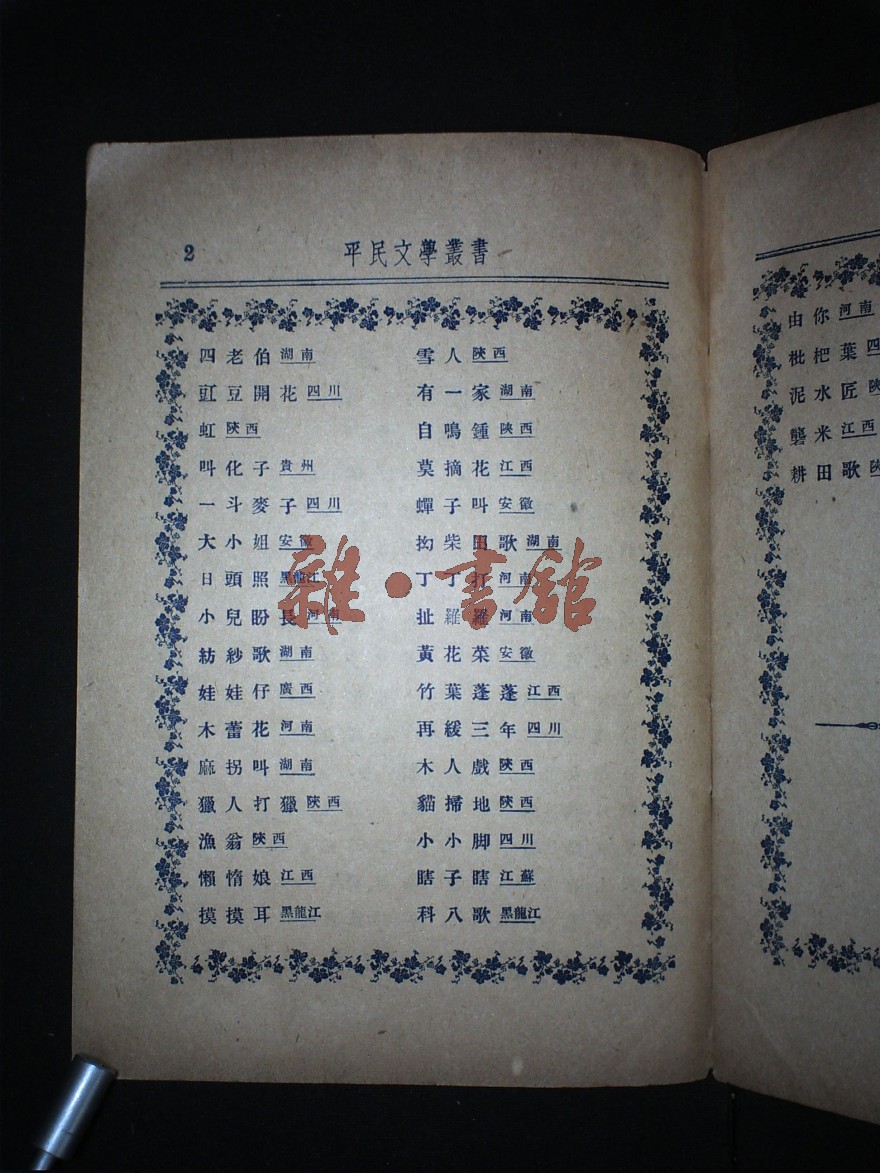 2 平民文學叢書
四老伯 湖南
豇豆開花 四川
虹 陝西
叫化子 貴州
一斗麥子 四川
大小姐 安徽
日頭照 黑龍江
小兒盼長 河南
紡紗歌 湖南
娃娃仔 廣西
木蕾花 河南
麻拐叫 湖南
獵人打獵 陝西
漁翁 陝西
懶惰娘 江西
摸摸耳 黑龍江
雪人 陝西
有一家 湖南
自鳴鍾 陝西
莫摘花 江西
蟬子叫 安徽
拗柴田歌 湖南
丁丁打 河南
扯羅羅 河南
黃花菜 安徽
竹葉蓬蓬 江西
再緩三年 四川
木人戲 陝西
貓掃地 陝西
小小脚 四川
瞎子瞎 江蘇
科八歌 黑龍江
雜·書館
由你 河南
枇杷葉 四
泥水匠 陝
礱米 江西
耕田歌 陝